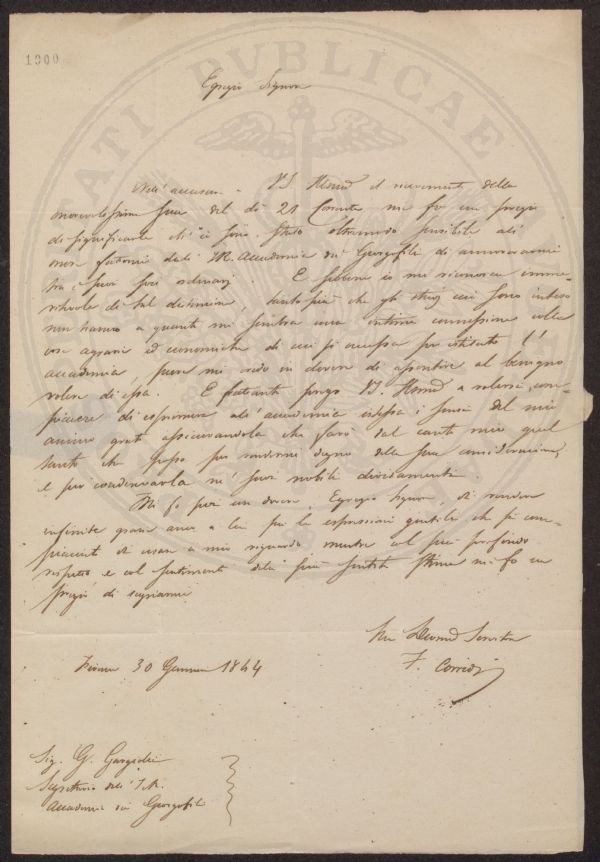 1300
PUBLICAE
Egregio Signore
Nell'accusare a V.S. Illma il ricevimento della
sua del dì 21 Corrente mi fo un pregio
di significarle ch'io sono stato oltremodo sensibile all'
onore fattomi dall' I.R. Accademia dei Georgofili di annoverarmi
tra i suoi soci ordinarj. E sebbene io mi riconosca imme-
ritevole di tal distinzione, tanto più che gli studj cui sono inteso
non hanno a quanto mi sembra una intima connessione colle
cose agrarie ed economiche di cui si occupa per istituto l'
accademia, pure mi credo in dovere di aderire al benigno
volere di essa. E frattanto prego V.S. Illma a volersi com-
piacere di esprimere all'accademia istessa i sensi del mio
animo grato assicurandola che farò dal canto mio quel
tanto che posso per rendermi degno della sua considerazione,
e per coadiuvarla ne' suoi nobili divisamenti.
Mi fo poi un dovere, Egregio Signore, di rendere
infinite grazie anco a Lei per le espressioni gentili che si com-
piacque di usare a mio riguardo mentre col più profondo
rispetto e col sentimento della più sentita stima mi fo un
pregio di segnarmi
Suo Devmo Servitore
F. Corridi
Firenze 30 Gennaio 1844
Sig. G.
Segretario dell'I.R.
Accademia dei Georgofili